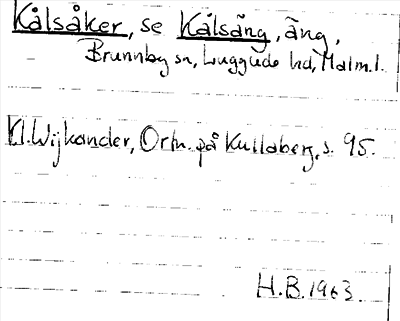 Kålsåker, se Kålsäng, äng,
Brunnby sn, Luggude hd, Malm.l.
Kl. Wijkander, Ortn. på Kullaberg, s. 95.
H.B. 1963.